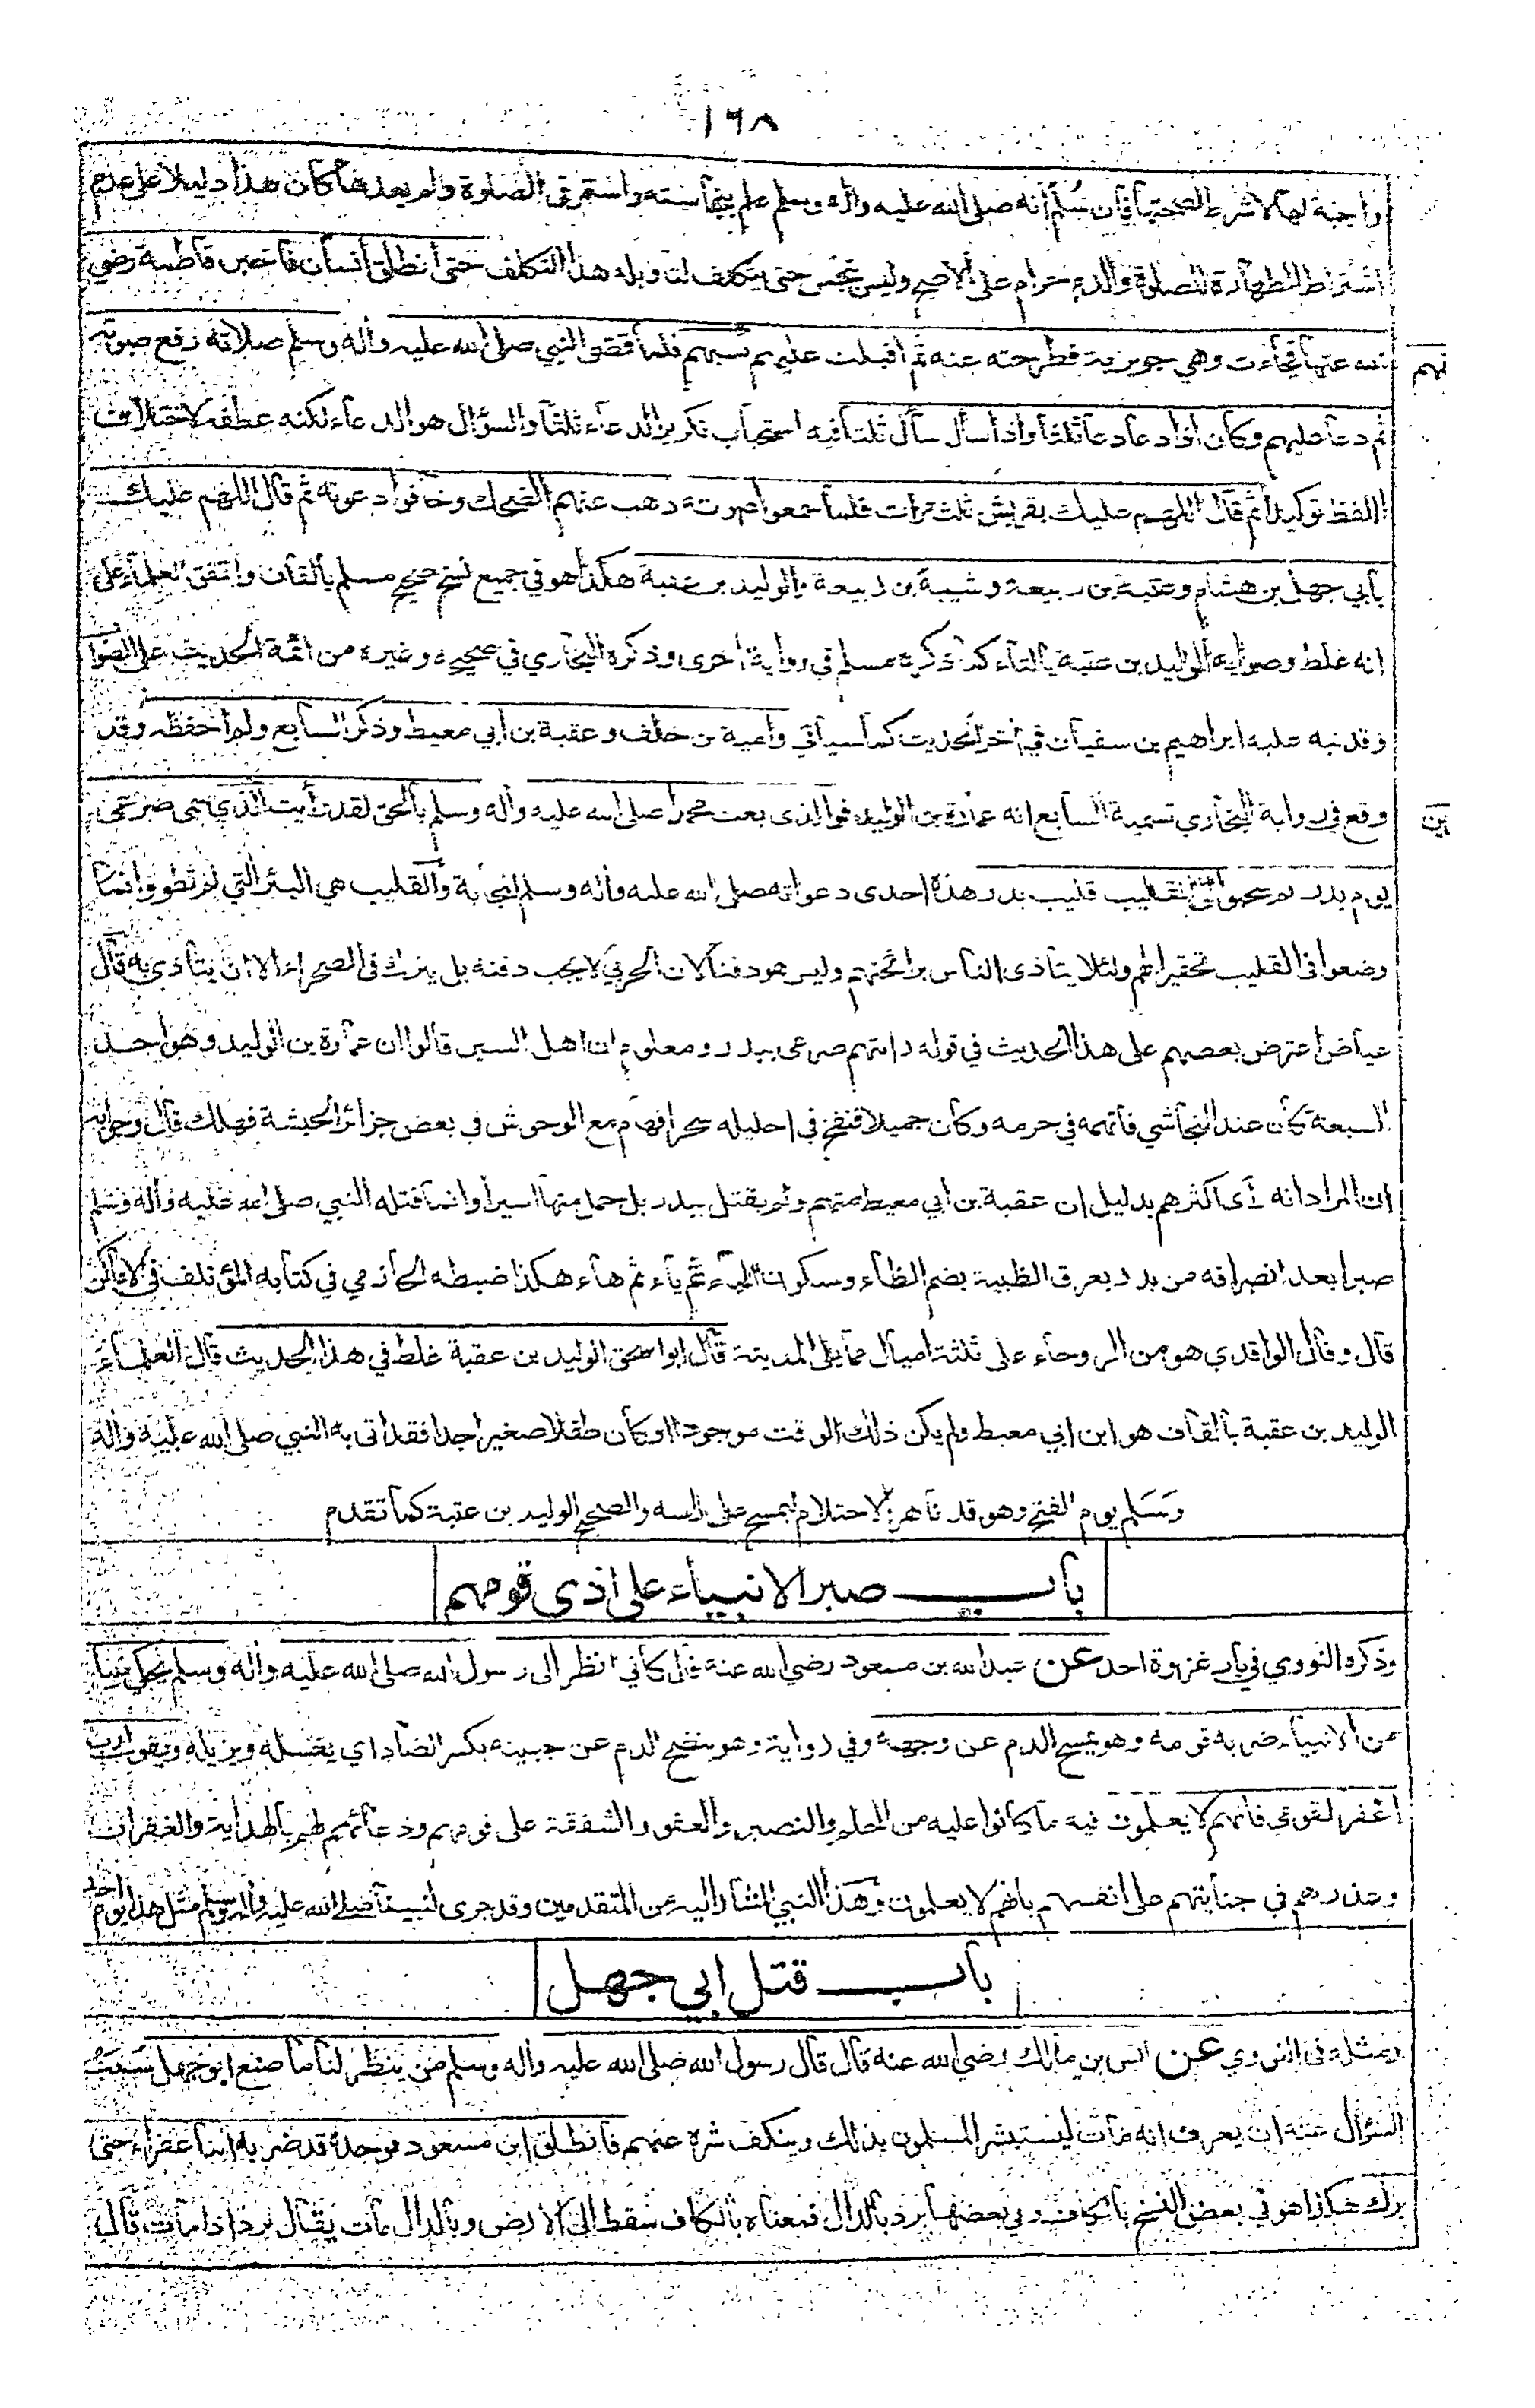 ١٦٨
واجبة لها لا شرط الصحتها فان سلم انه صلى الله عليه واله وسلم علم بنجاسته واستمر في الصلوة ولم يعدها كان هذا دليلا على عدم
اشتراط الطهارة للصلوة والدم حرام على الاصح وليس بنجس حتى يتكلف لتاويله هذا التكلف حتى انطلق انسان فاخبر فاطمة رضي
الله عنها فجاءت وهي جويرية فطرحته عنه ثم اقبلت عليهم تسبهم فلما قضى النبي صلى الله عليه واله وسلم صلاته رفع صوته
ثم دعا عليهم وكان اذا دعا دعا ثلثا واذا سأل سأل ثلثا فيه استحباب تكرير الدعاء ثلثا والسؤال هو الدعاء لكنه عطفه لاختلاف
اللفظ توكيدا ثم قال اللهم عليك بقريش ثلث مرات فلما سمعوا صوته ذهب عنهم الضحك وخافوا دعوته ثم قال اللهم عليك
بابي جهل بن هشام وعتبة بن ربيعة وشيبة بن ربيعة والوليد بن عقبة هكذا هو في جميع نسخ صحيح مسلم بالقاف واتفق العلماء على
انه غلط وصوابه الوليد بن عتبة بالتاء كما ذكره مسلم في رواية اخرى وذكره البخاري في صحيحه وغيره من ائمة الحديث على الصواب
وقد نبه عليه ابراهيم بن سفيان في اخر الحديث كما سيأتي وامية بن خلف وعقبة بن ابي معيط وذكر السابع ولم احفظه وقد
وقع في رواية البخاري تسمية السابع انه عمارة بن الوليد فوالذي بعث محمدا صلى الله عليه واله وسلم بالحق لقد رأيت الذي سمى صرعى
يوم بدر ثم سحبوا الى القليب قليب بدر هذه احدى دعواته صلى الله عليه واله وسلم المجابة والقليب هي البئر التي لم تطو وانما
وضعوا في القليب تحقيرا لهم ولئلا يتأذى الناس برائحتهم وليس هو دفنا لان الحربي لا يجب دفنه بل يترك في الصحراء الا ان يتأذى به قال
عياض اعترض بعضهم على هذا الحديث في قوله رايتهم صرعى ببدر ومعلوم ان اهل السير قالوا ان عمارة بن الوليد وهو احد
السبعة كان عند النجاشي فاتهمه في حرمه وكان جميلا فنفخ في احليله سحرا فهام مع الوحوش في بعض جزائر الحبشة فهلك قال وجوابه
ان المراد انه رأى اكثرهم بدليل ان عقبة بن ابي معيط منهم ولم يقتل ببدر بل حمل منها اسيرا وانما قتله النبي صلى الله عليه واله وسلم
صبرا بعد انصرافه من بدر بعرق الظبية بضم الظاء وسكون الباء ثم ياء ثم هاء هكذا ضبطه الحازمي في كتابه المؤتلف في الاماكن
قال وقال الواقدي هو من الروحاء على ثلثة اميال مما يلي المدينة قال ابو اسحق الوليد بن عقبة غلط في هذا الحديث قال العلماء
الوليد بن عقبة بالقاف هو ابن ابي معيط ولم يكن ذلك الوقت موجودا او كان طفلا صغيرا جدا فقد اتى به النبي صلى الله عليه واله
وسلم يوم الفتح وهو قد ناهز الاحتلام ليمسح على راسه والصحيح الوليد بن عتبة كما تقدم
باب صبر الانبياء على اذى قومهم
وذكره النووي في باب غزوة احد عن عبد الله بن مسعود رضي الله عنه قال كاني انظر الى رسول الله صلى الله عليه واله وسلم يحكي نبيا
من الانبياء ضربه قومه وهو يمسح الدم عن وجهه وفي رواية وهو ينضح الدم عن جبينه بكسر الضاد اي يغسله ويزيله ويقول رب
اغفر لقومي فانهم لا يعلمون فيه ما كانوا عليه من الحلم والتصبر والعفو والشفقة على قومهم ودعائهم لهم بالهداية والغفران
وعذرهم في جنايتهم على انفسهم بانهم لا يعلمون وهذا النبي المشار اليه من المتقدمين وقد جرى لنبينا صلى الله عليه واله وسلم مثل هذا يوم احد
باب قتل ابي جهل
ومثله في النووي عن انس بن مالك رضي الله عنه قال قال رسول الله صلى الله عليه واله وسلم من ينظر لنا ما صنع ابو جهل سبب
السؤال عنه ان يعرف انه مات ليستبشر المسلمون بذلك وينكف شره عنهم فانطلق ابن مسعود فوجده قد ضربه ابنا عفراء حتى
برك هكذا هو في بعض النسخ بالكاف وفي بعضها برد بالدال فمعناه بالكاف سقط الى الارض وبالدال مات يقال برد اذا مات قال